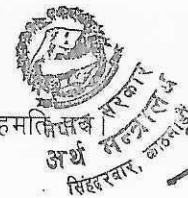 हमति पत्र
सरकार
अर्थ मन्त्रालय
सिंहदरबार, काठमाडौं